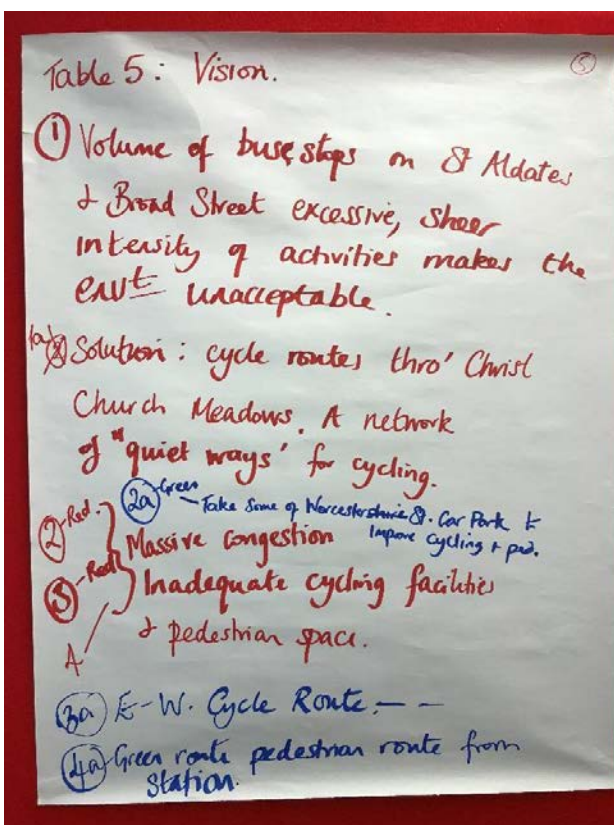 Table 5: Vision.
5
① Volume of buses stops on St Aldates
& Broad Street excessive, sheer
intensity of activities makes the
envt unacceptable.
1a) Solution: cycle routes thro' Christ
Church Meadows. A network
of "quiet ways' for cycling.
2a Green
- Take some of Worcestershire St. Car Park to
Improve cycling + ped.
2 - Red. Massive congestion
3 - Red Inadequate cycling facilities
& pedestrian space.
A
3a E-W. Cycle Route - -
4a Green route pedestrian route from
station.